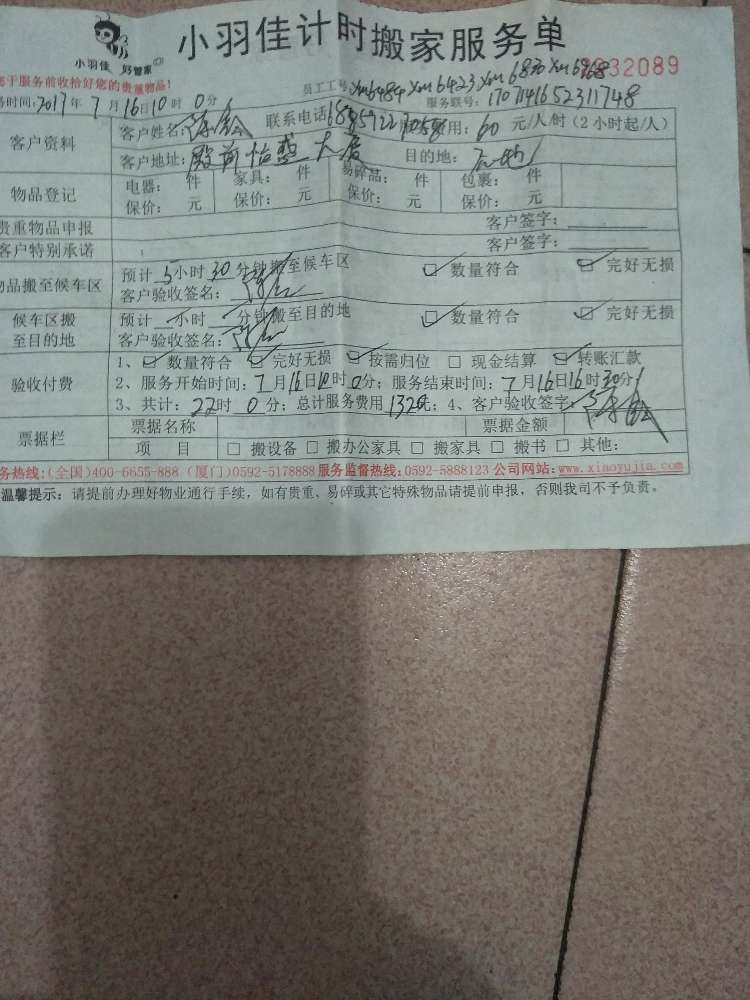 小羽佳计时搬家服务单
小羽佳 好管家
于服务前收拾好您的贵重物品!
员工工号: Xm6484 Xm6423 Xm6830 Xm6968
32089
务时间: 2017年7月16日10时0分
服务联号: 17071416523111748
客户资料 客户姓名: 联系电话 用: 60元/人/时(2小时起/人)
客户地址: 殿前怡盛大厦 目的地:
物品登记 电器: 件 家具: 件 易碎品: 件 包裹: 件
保价: 元 保价: 元 保价: 元 保价: 元
贵重物品申报 客户签字:
客户特别承诺 客户签字:
物品搬至候车区 预计5小时30分钟搬至候车区 ☑数量符合 ☑完好无损
客户验收签名:
候车区搬至目的地 预计 小时 分钟搬至目的地 ☑数量符合 ☑完好无损
客户验收签名:
验收付费 1、☑数量符合 ☑完好无损 ☑按需归位 □现金结算 ☑转账汇款
2、服务开始时间: 7月16日10时0分; 服务结束时间: 7月16日16时30分
3、共计: 22时0分; 总计服务费用1320元; 4、客户验收签字:
票据栏 票据名称 票据金额
项 目 □搬设备 □搬办公家具 □搬家具 □搬书 □其他:
务热线:(全国)400-6655-888 (厦门)0592-5178888 服务监督热线:0592-5888123 公司网站:www.xiaoyujia.com
温馨提示: 请提前办理好物业通行手续, 如有贵重、易碎或其它特殊物品请提前申报, 否则我司不予负责。